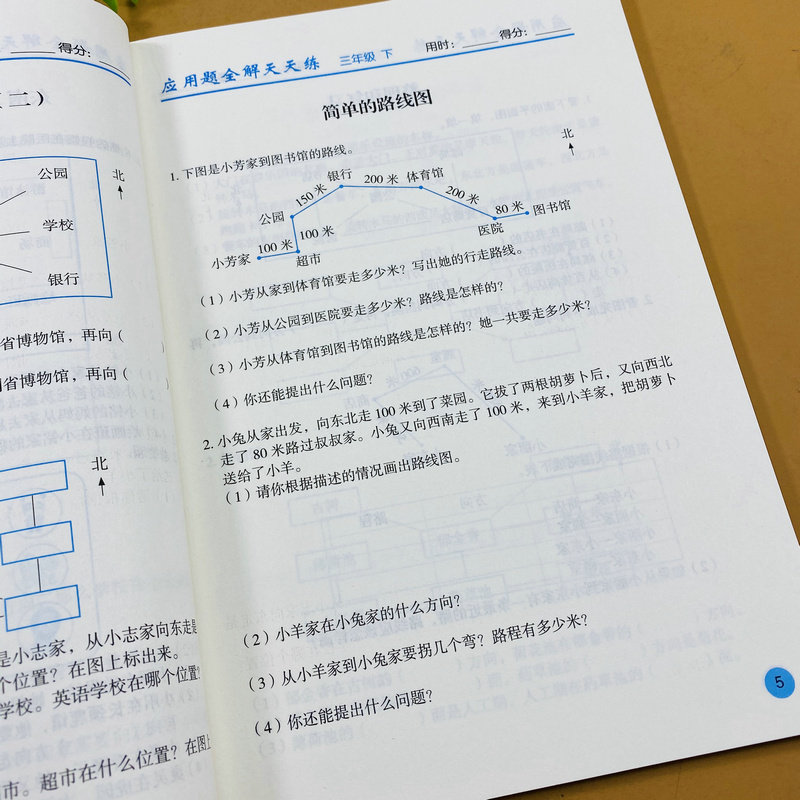 得分：
二）
公园
北
学校
银行
省博物馆，再向（
省博物馆，再向（
北
是小志家，从小志家向东走
个位置？在图上标出来。
学校。英语学校在哪个位置
市。超市在什么位置？在图
应用题全解天天练 三年级 下 用时： 得分：
简单的路线图
1. 下图是小芳家到图书馆的路线。
北
银行 200 米 体育馆
150 米
200 米
公园
80 米 图书馆
100 米
100 米
医院
小芳家
超市
（1）小芳从家到体育馆要走多少米？写出她的行走路线。
（2）小芳从公园到医院要走多少米？路线是怎样的？
（3）小芳从体育馆到图书馆的路线是怎样的？她一共要走多少米？
（4）你还能提出什么问题？
2. 小兔从家出发，向东北走 100 米到了菜园。它拔了两根胡萝卜后，又向西北
走了 80 米路过叔叔家。小兔又向西南走了 100 米，来到小羊家，把胡萝卜
送给了小羊。
（1）请你根据描述的情况画出路线图。
（2）小羊家在小兔家的什么方向？
（3）从小羊家到小兔家要拐几个弯？路程有多少米？
（4）你还能提出什么问题？
5